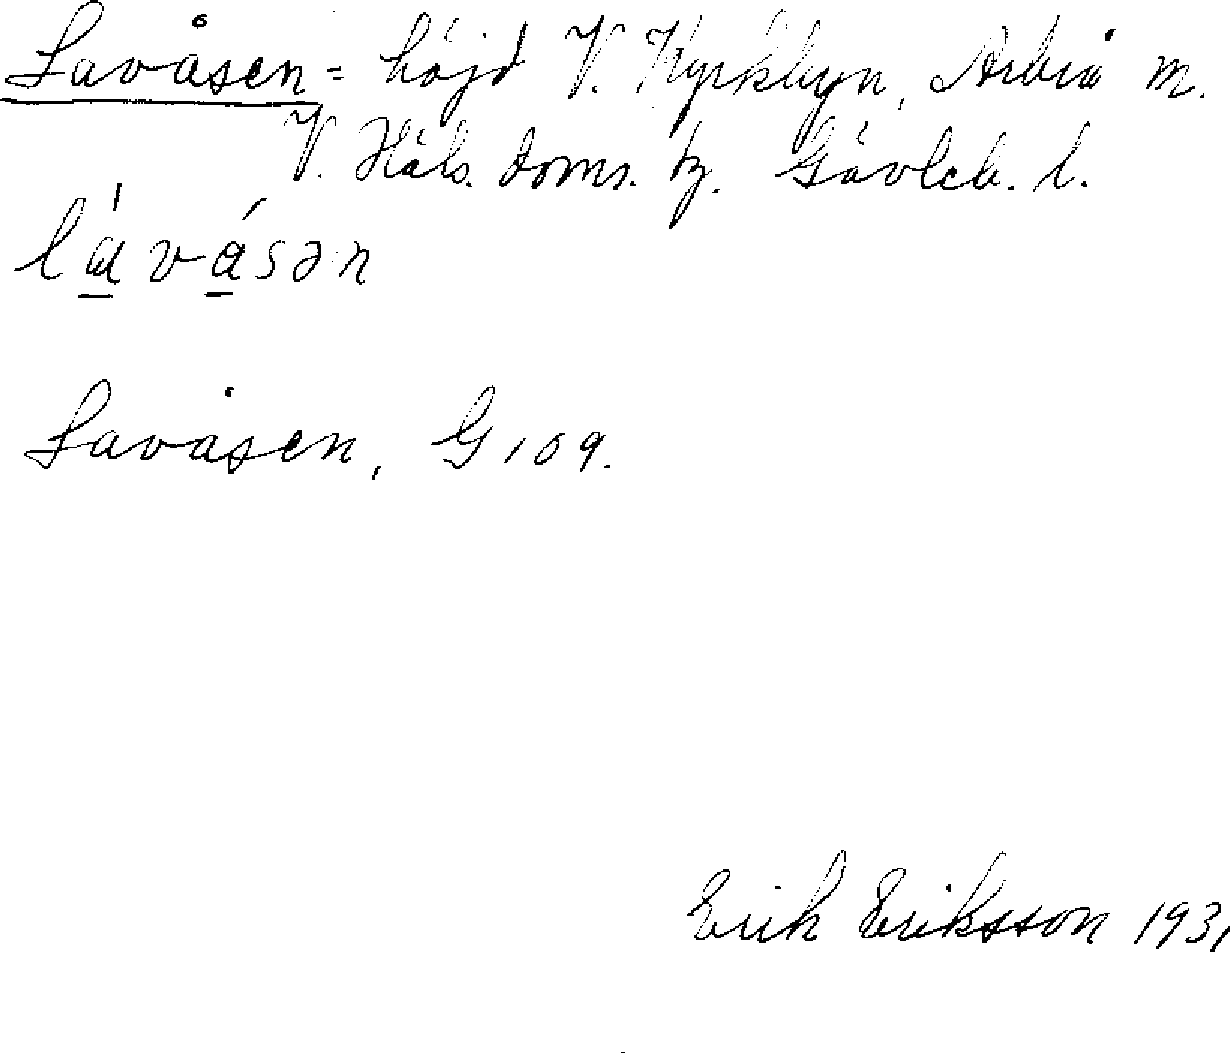 Lavåsen = höjd V. Kyrkbyn, Arbrå m.
V. Häls. doms. tg. Gävleb. l.
lávásən
Lavåsen, G 109.
Erik Eriksson 1931